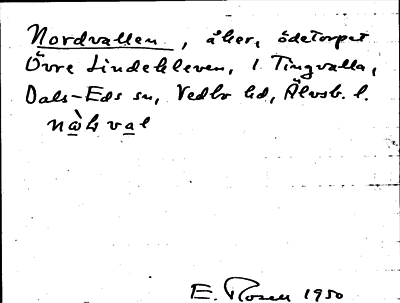 Nordvallen, åker, ödetorpet
Övre Lindekleven, l. Tingvalla,
Dals-Eds sn, Vedbo hd, Älvsb. l.
E. Rosell 1950